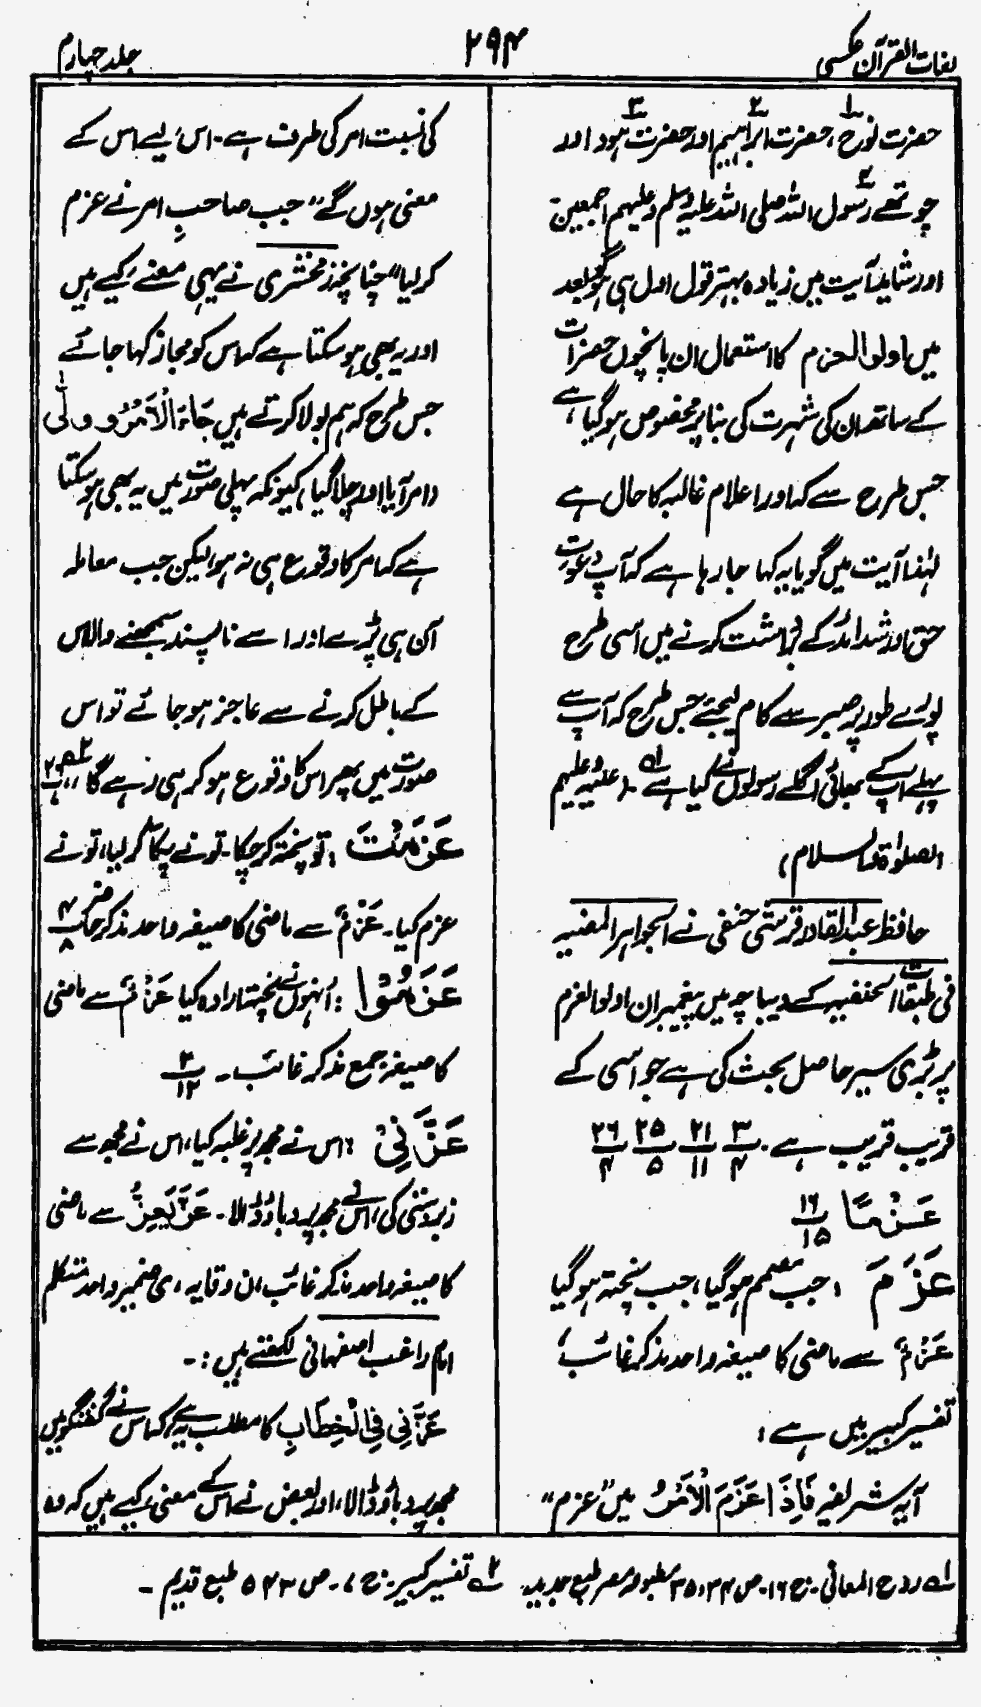 لغات القرآن عکسی
۲۹۴
جلد چہارم
حضرت نوح۱، حضرت ابراہیم۲ اور حضرت ہود۳ اور
چوتھے رسول۴ اللہ صلی اللہ علیہ وسلم وعلیہم اجمعین
اور شاید آیت میں زیادہ بہتر قول اول ہی ہو گو بعد
میں اولوالعزم کا استعمال ان پانچوں حضرات
کے ساتھ ان کی شہرت کی بنا پر مخصوص ہو گیا ہے
جس طرح سے کہ اور اعلام غالبہ کا حال ہے
لہٰذا آیت میں گویا یہ کہا جا رہا ہے کہ آپ دعوت
حق اور شدائد کے برداشت کرنے میں اسی طرح
پورے طور پر صبر سے کام لیجئے جس طرح کہ آپ سے
پہلے آپ کے بھائی اگلے رسولوں نے کیا ہے۔۱؎ (علیہ وعلیہم
الصلوٰۃ والسلام)
حافظ عبدالقادر قرشی حنفی نے الجواہر المضیہ
فی طبقات الحنفیہ کے دیباچہ میں پیغمبران اولوالعزم
پر بڑی سیر حاصل بحث کی ہے جو اسی کے
قریب قریب ہے۔ ۳/۴ ۲۱/۱۱ ۲۵/۵ ۲۶/۴
عَزْمًا ۱۶/۱۵
عَزَمَ : جب مصمم ہو گیا، جب پختہ ہو گیا
عَزْمٌ سے ماضی کا صیغہ واحد مذکر غائب،
تفسیر کبیر میں ہے :
آیہ شریفہ فَاِذَا عَزَمَ الْاَمْرُ میں "عزم"
کی نسبت امر کی طرف ہے۔ اس لیے اس کے
معنی ہوں گے "جب صاحبِ امر نے عزم
کر لیا" چنانچہ زمخشری نے یہی معنے کیے ہیں
اور یہ بھی ہو سکتا ہے کہ اس کو مجاز کہا جائے
جس طرح کہ ہم بولا کرتے ہیں جَاءَ الْاَمْرُ و ولّٰی
(امر آیا اور چلا گیا) کیونکہ پہلی صورت میں یہ بھی ہو سکتا
ہے کہ امر کا وقوع ہی نہ ہو لیکن جب معاملہ
آن ہی پڑے اور اسے ناپسند سمجھنے والا اس
کے باطل کرنے سے عاجز ہو جائے تو اس
صورت میں پھر اس کا وقوع ہو کر ہی رہے گا"۲؎ پ۲۶
عَزَمْتَ : تو پختہ کر چکا۔ تو نے پکا کر لیا، تو نے
عزم کیا۔ عَزْمٌ سے ماضی کا صیغہ واحد مذکر حاضر ۴/۸
عَزَمُوْا : اُنہوں نے پختہ ارادہ کیا عَزْمٌ سے ماضی
کا صیغہ جمع مذکر غائب۔ ۲/۱۲
عَزَّنِیْ : اس نے مجھ پر غلبہ کیا، اس نے مجھ سے
زبردستی کی، اس نے مجھ پر دباؤ ڈالا۔ عَزَّ یَعِزُّ سے ماضی
کا صیغہ واحد مذکر غائب، ن وقایہ، ی ضمیر واحد متکلم
امام راغب اصفہانی لکھتے ہیں :۔
عَزَّنِی فِی الْخِطَابِ کا مطلب یہ ہے کہ اس نے گفتگو میں
مجھ پر دباؤ ڈالا، اور بعض نے اس کے معنی کیے ہیں کہ وہ
۱؎ روح المعانی۔ ج ۱۶۔ ص ۳۴، ۳۵ مطبوعہ مصر طبع جدید۔ ۲؎ تفسیر کبیر۔ ج ۷۔ ص ۵۲۳ طبع قدیم۔